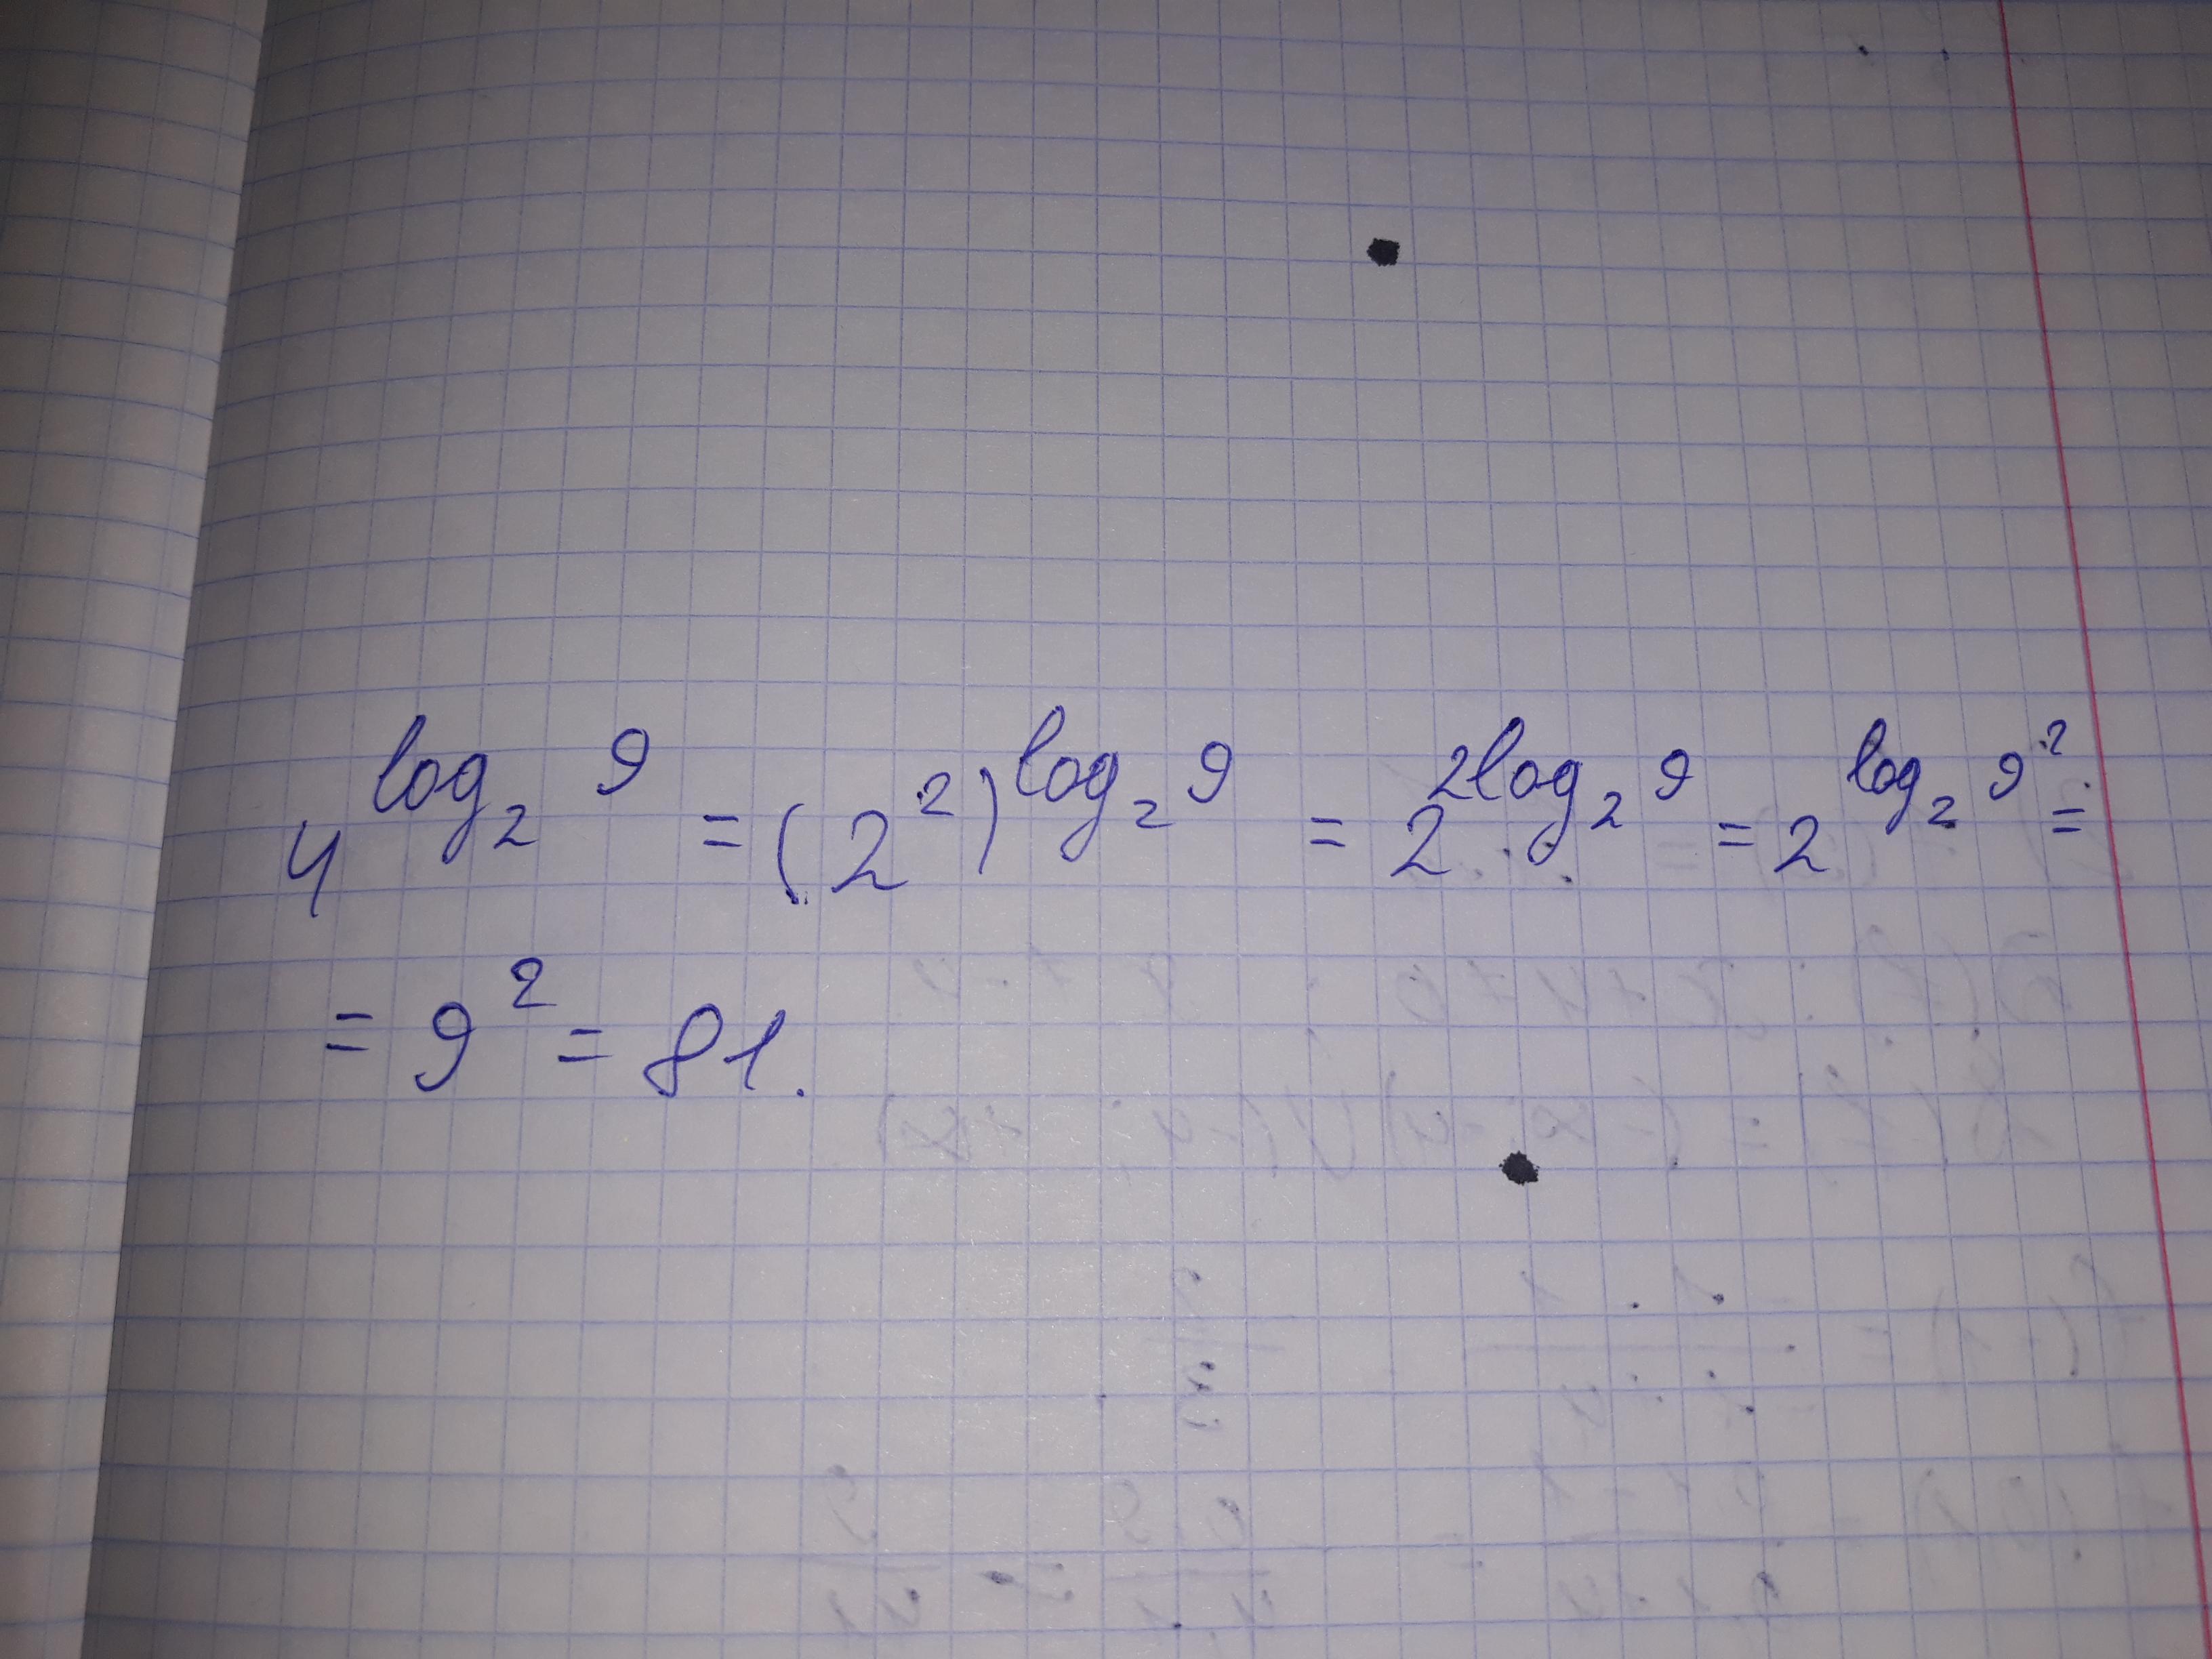 4^{log_2 9} = (2^2)^{log_2 9} = 2^{2log_2 9} = 2^{log_2 9^2} =
= 9^2 = 81.